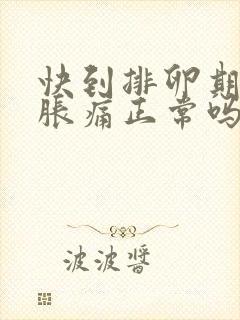 快到排卵期
胀痛正常吗
波波酱